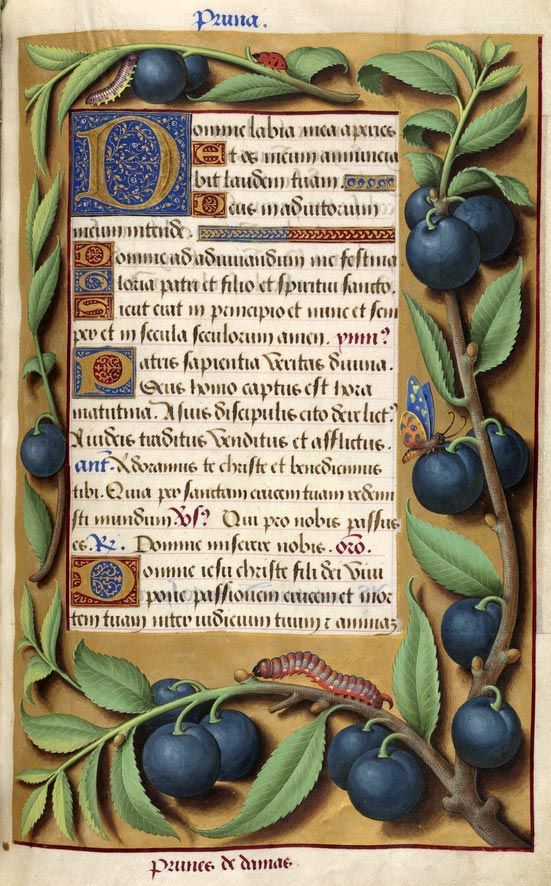 Pruna.
Domine labia mea aperies
Et os meum annuncia
bit laudem tuam.
Deus in adiutorium
meum intende.
Domine ad adiuvandum me festina
Gloria patri et filio et spiritui sancto.
Sicut erat in principio et nunc et sem
per et in secula seculorum amen. ymn?
Patris sapientia veritas divina.
Deus homo captus est hora
matutina. A suis discipulis cito derelict?
A iudeis traditus venditus et afflictus.
ant? Adoramus te christe et benedicimus
tibi. Quia per sanctam crucem tuam redemi
sti mundum Vs? Qui pro nobis passus
es. Rx. Domine miserere nobis. oro.
Domine iesu christe fili dei vivi
pone passionem crucem et mor
tem tuam inter iudicium tuum z animaz
Prunes de damas